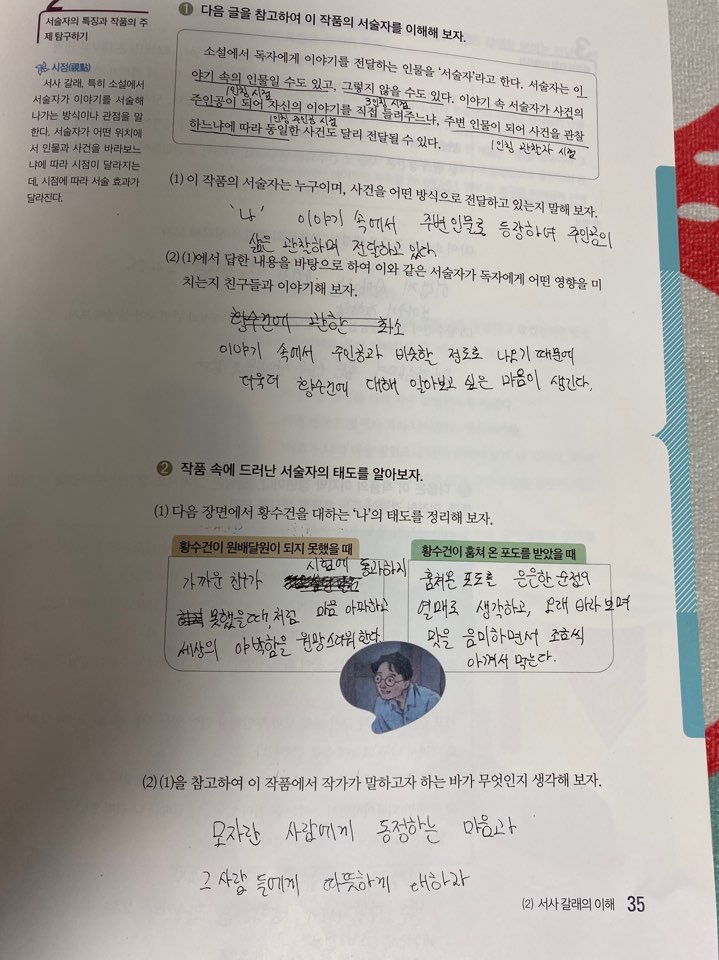 2
서술자의 특징과 작품의 주
제 탐구하기
시점(視點)
서사 갈래, 특히 소설에서
서술자가 이야기를 서술해
나가는 방식이나 관점을 말
한다. 서술자가 어떤 위치에
서 인물과 사건을 바라보느
냐에 따라 시점이 달라지는
데, 시점에 따라 서술 효과가
달라진다.
1 다음 글을 참고하여 이 작품의 서술자를 이해해 보자.
소설에서 독자에게 이야기를 전달하는 인물을 '서술자'라고 한다. 서술자는 이
야기 속의 인물일 수도 있고, 그렇지 않을 수도 있다. 이야기 속 서술자가 사건의
1인칭 시점 3인칭 시점
주인공이 되어 자신의 이야기를 직접 들려주느냐, 주변 인물이 되어 사건을 관찰
1인칭 주인공 시점 1인칭 관찰자 시점
하느냐에 따라 동일한 사건도 달리 전달될 수 있다.
(1) 이 작품의 서술자는 누구이며, 사건을 어떤 방식으로 전달하고 있는지 말해 보자.
'나' 이야기 속에서 주변인물로 등장하여 주인공의
삶을 관찰하며 전달하고 있다.
(2) (1)에서 답한 내용을 바탕으로 하여 이와 같은 서술자가 독자에게 어떤 영향을 미
치는지 친구들과 이야기해 보자.
황수건에 관한 최소
이야기 속에서 주인공과 비슷할 정도로 나오기 때문에
더욱더 황수건에 대해 알아보고 싶은 마음이 생긴다.
2 작품 속에 드러난 서술자의 태도를 알아보자.
(1) 다음 장면에서 황수건을 대하는 '나'의 태도를 정리해 보자.
황수건이 원배달원이 되지 못했을 때
가까운 친구가 시험에 통과하지
못했을때, 처럼 마음 아파하고
세상의 야박함을 원망스러워 한다.
황수건이 훔쳐 온 포도를 받았을 때
훔쳐온 포도를 은은한 순정의
열매로 생각하고, 오래 바라보며
맛을 음미하면서 조금씩
아껴서 먹는다.
(2) (1)을 참고하여 이 작품에서 작가가 말하고자 하는 바가 무엇인지 생각해 보자.
모자란 사람에게 동정하는 마음과
그 사람 들에게 따뜻하게 대하라
(2) 서사 갈래의 이해 35